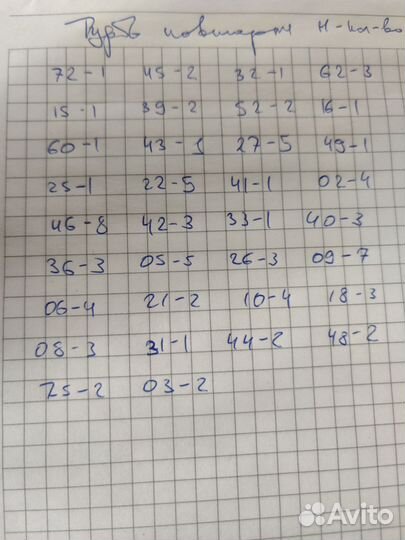 72-1 45-2 32-1 62-3
15-1 39-2 52-2 16-1
60-1 43-1 27-5 49-1
25-1 22-5 41-1 02-4
46-8 42-3 33-1 40-3
36-3 05-5 26-3 09-7
06-4 21-2 10-4 18-3
08-3 31-1 44-2 48-2
75-2 03-2
Avito